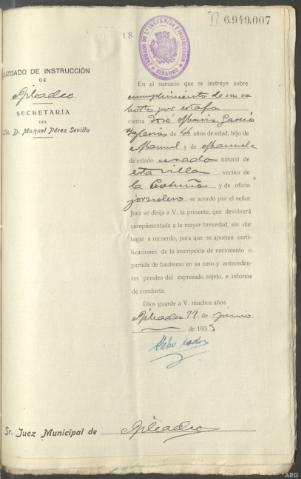 6.949.007
JUZGADO DE INSTRUCCIÓN
DE
SECRETARÍA
DEL
Ldo. D. Manuel Pérez Sevilla
En el sumario que se instruye sobre
cumplimiento de
por estafa
contra José María García
Iglesias de años de edad, hijo de
Manuel y de Manuela
de estado casado natural de
esta villa vecino de
La Coruña y de oficio
jornalero se acordó por el señor
Juez se dirija a V. la presente, que devolverá
cumplimentada a la mayor brevedad, sin dar
lugar a recuerdo, para que se aporten certi-
ficaciones de la inscripción de nacimiento o
partida de bautismo en su caso y anteceden-
tes penales del expresado sujeto, e informe
de conducta.
Dios guarde a V. muchos años
22 de junio
de 1933
Sr. Juez Municipal de